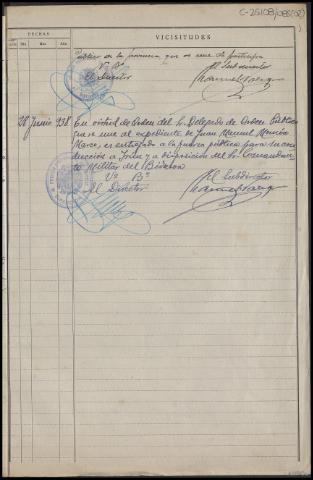 C-25108/085(02)
FECHAS
VICISITUDES
Día Mes Año
Público de la provincia, que se une de
Vº Bº El Subdirector
El Director
28 Junio 938 En virtud de Orden del Sr. Delegado de Orden Público
que se une al expediente de Juan Manuel
es entregado a la fuerza pública para su con-
ducción a Irún y a disposición del Sr. Comandan-
te Militar del Bidasoa
Vº Bº El Subdirector
El Director